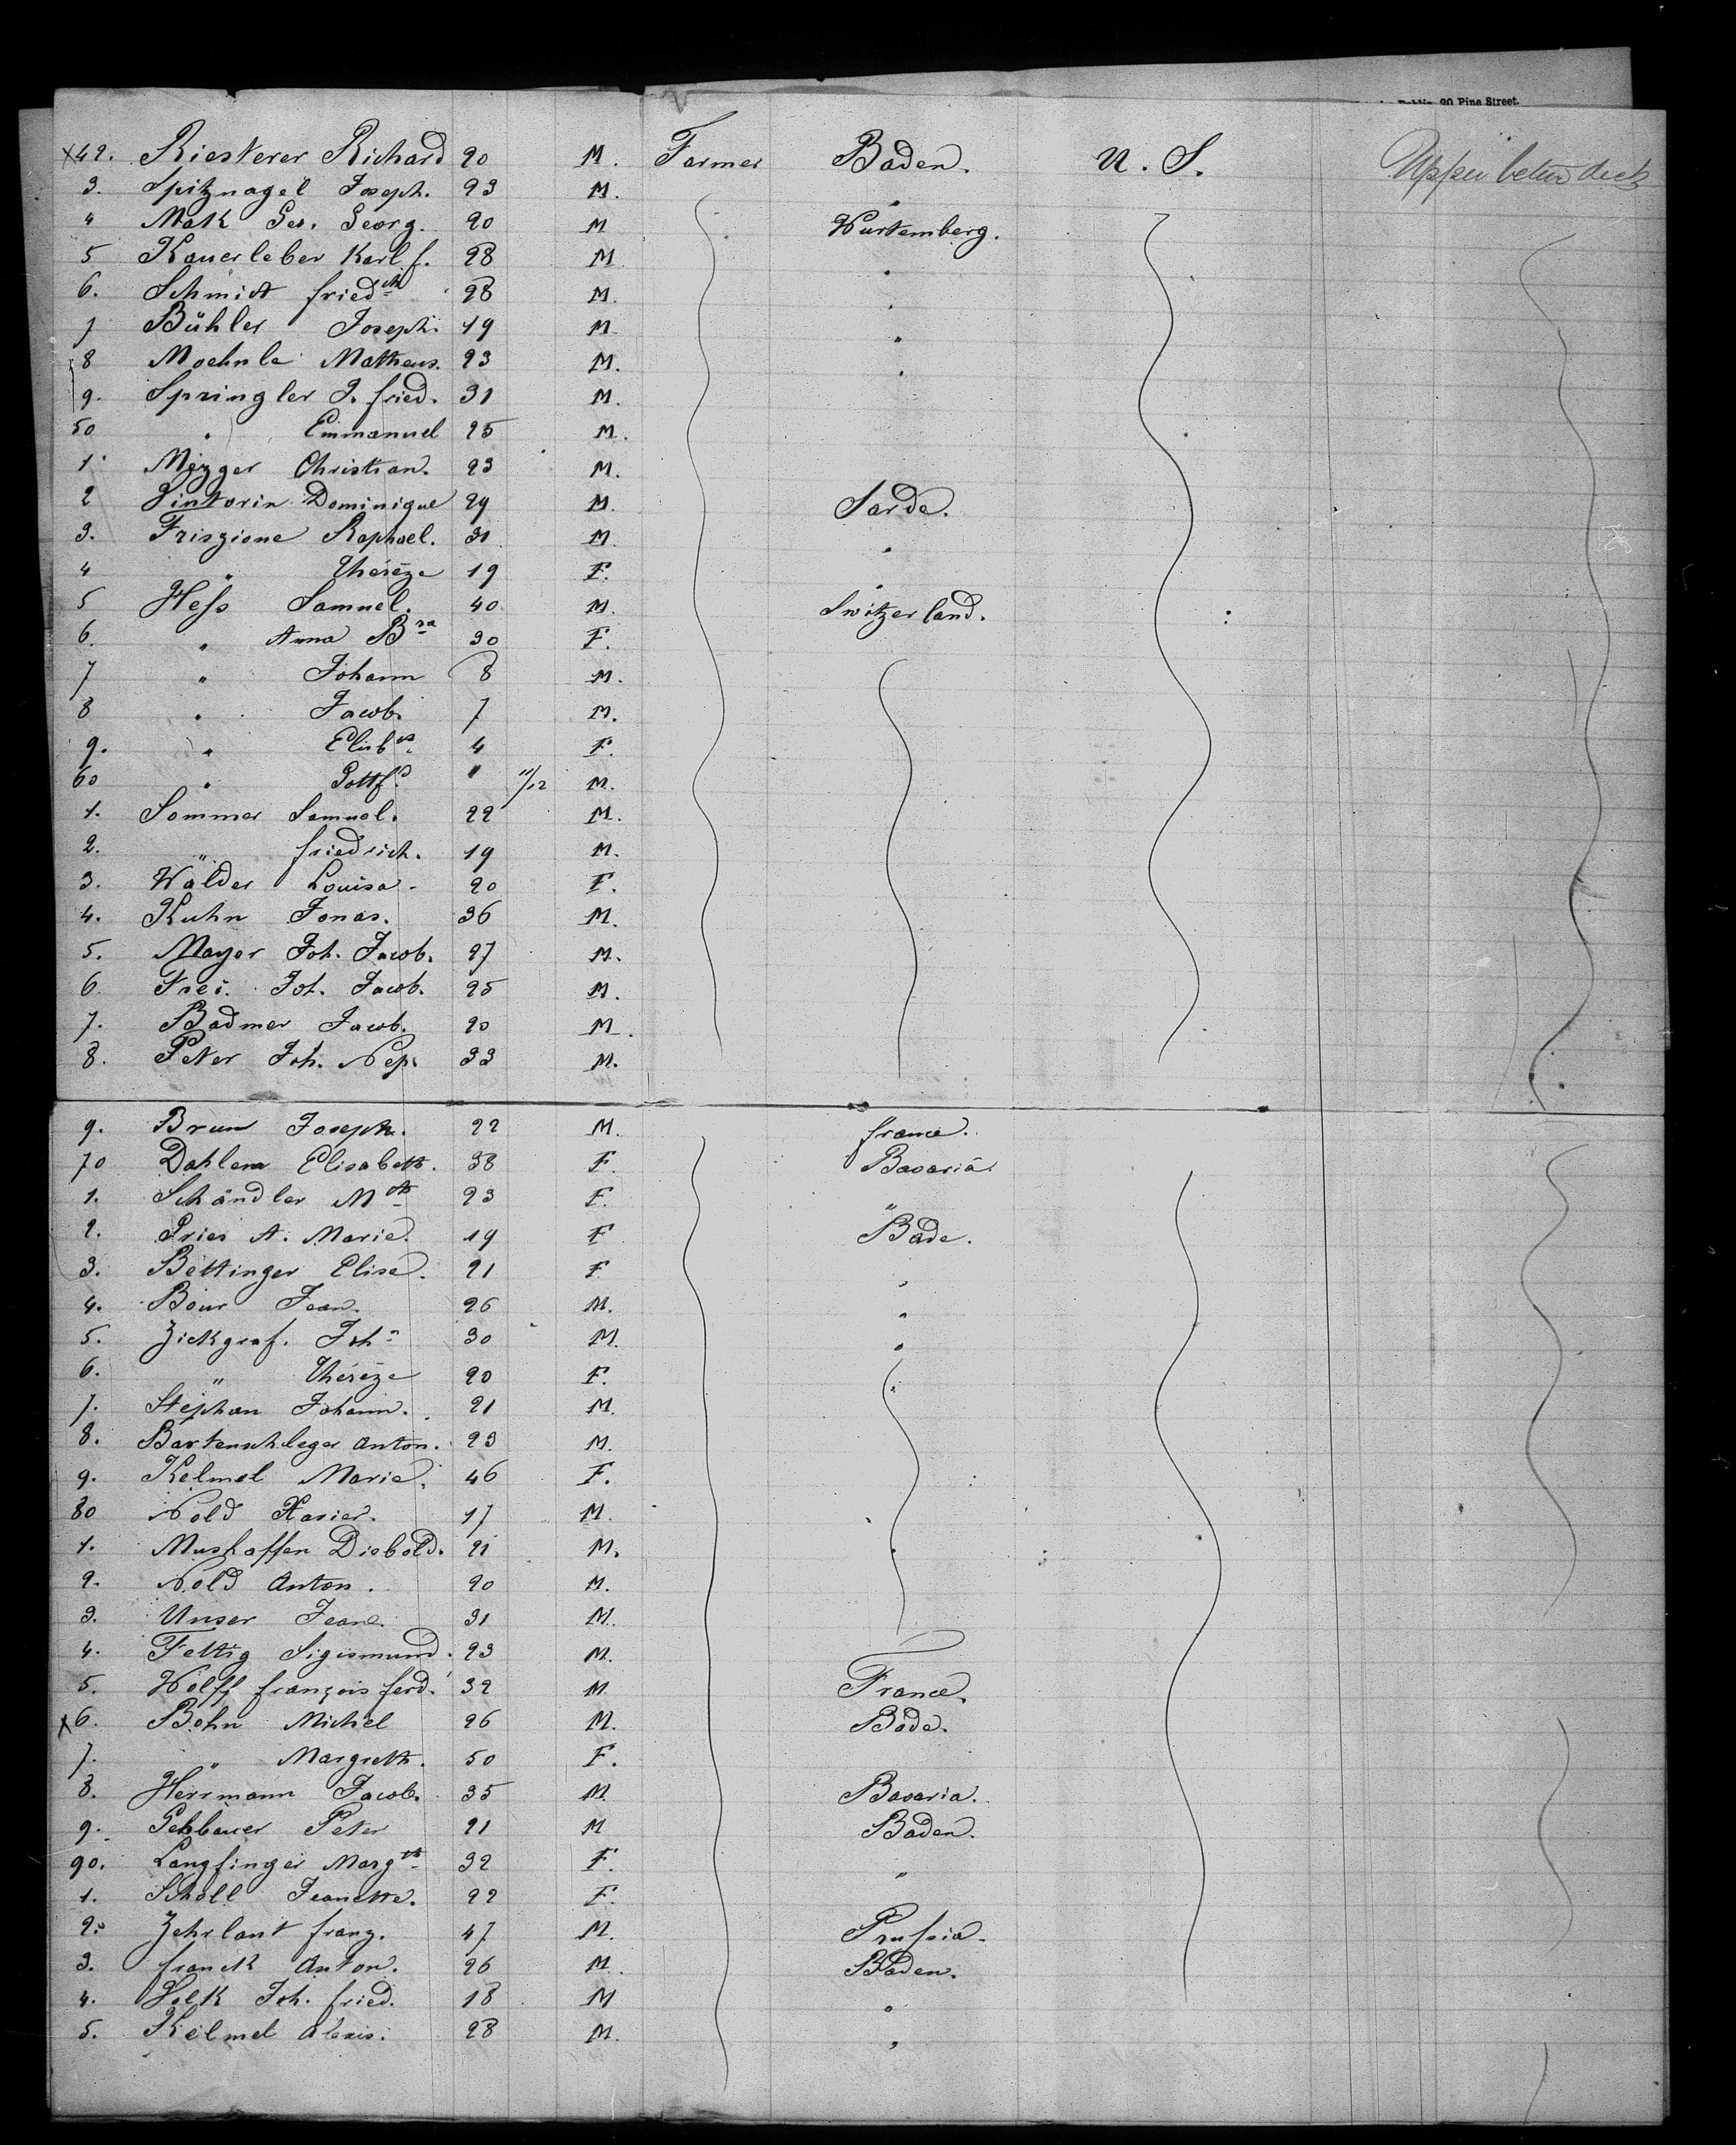 Pine Street.
x42. Riesterer Richard 20 M. Farmer Baden. U. S. Upper betw deck
3. Spitznagel Joseph. 23 M. "
4 Mak Ges. Georg. 20 M Wurtemberg.
5 Kauerleber Karl f. 28 M "
6. Schmidt friedch 28 M. "
7 Bühler Joseph. 19 M. "
8 Moehnle Matheus. 23 M. "
9. Springler J. fried. 31 M.
50 " Emmanuel 25 M.
1. Mezger Christian. 23 M.
2 Pintorin Dominique 29 M. Sarde.
3. Friszione Raphael. 31 M. "
4 " Thérèze 19 F. "
5 Hess Samuel. 40 M. Switzerland.
6. " Anna Bra 30 F.
7 " Johann 8 M.
8 " Jacob. 7 M.
9. " Elisbth 4 F.
60 " Gottfd " 11/12 M.
1. Sommer Samuel. 22 M.
2. " friedrich. 19 M.
3. Walder Louisa. 20 F.
4. Kuhn Jonas. 36 M.
5. Mayer Joh. Jacob. 27 M.
6 Frei. Joh. Jacob. 25 M.
7. Badmer Jacob. 20 M.
8. Peter Joh. Nep. 33 M.
9. Brum Joseph. 22 M. france.
70 Dahlem Elisabeth. 38 F. Bavaria
1. Schändler Mth 23 F. "
2. Pries A. Marie. 19 F Bade.
3. Bettinger Elise. 21 F "
4. Bour Jean. 26 M. "
5. Zickgraf. John 30 M. "
6. " Thérèze 20 F.
7. Stephan Johann. 21 M.
8. Bartenschleger Anton. 23 M.
9. Kelmel Marie. 46 F.
80 Nold Xavier. 17 M.
1. Mushaffen Diebold. 21 M.
2. Nold Anton. 20 M.
3. Unser Jean. 31 M.
4. Fettig Sigismund. 23 M.
5. Wolff françois ferd. 32 M France.
x6. Bohn Michel 26 M. Bade.
7. " Margreth. 50 F.
8. Herrmann Jacob. 35 M. Bavaria.
9. Pehbauer Peter 21 M Baden.
90. Langfinger Margth 32 F. "
1. Scholl Jeanette. 22 F.
2. Zehrlaut franz. 47 M. Prussia.
3. franck Anton. 26 M. Baden.
4. Holk Joh. fried. 18 M "
5. Kelmel Alexis. 28 M. "